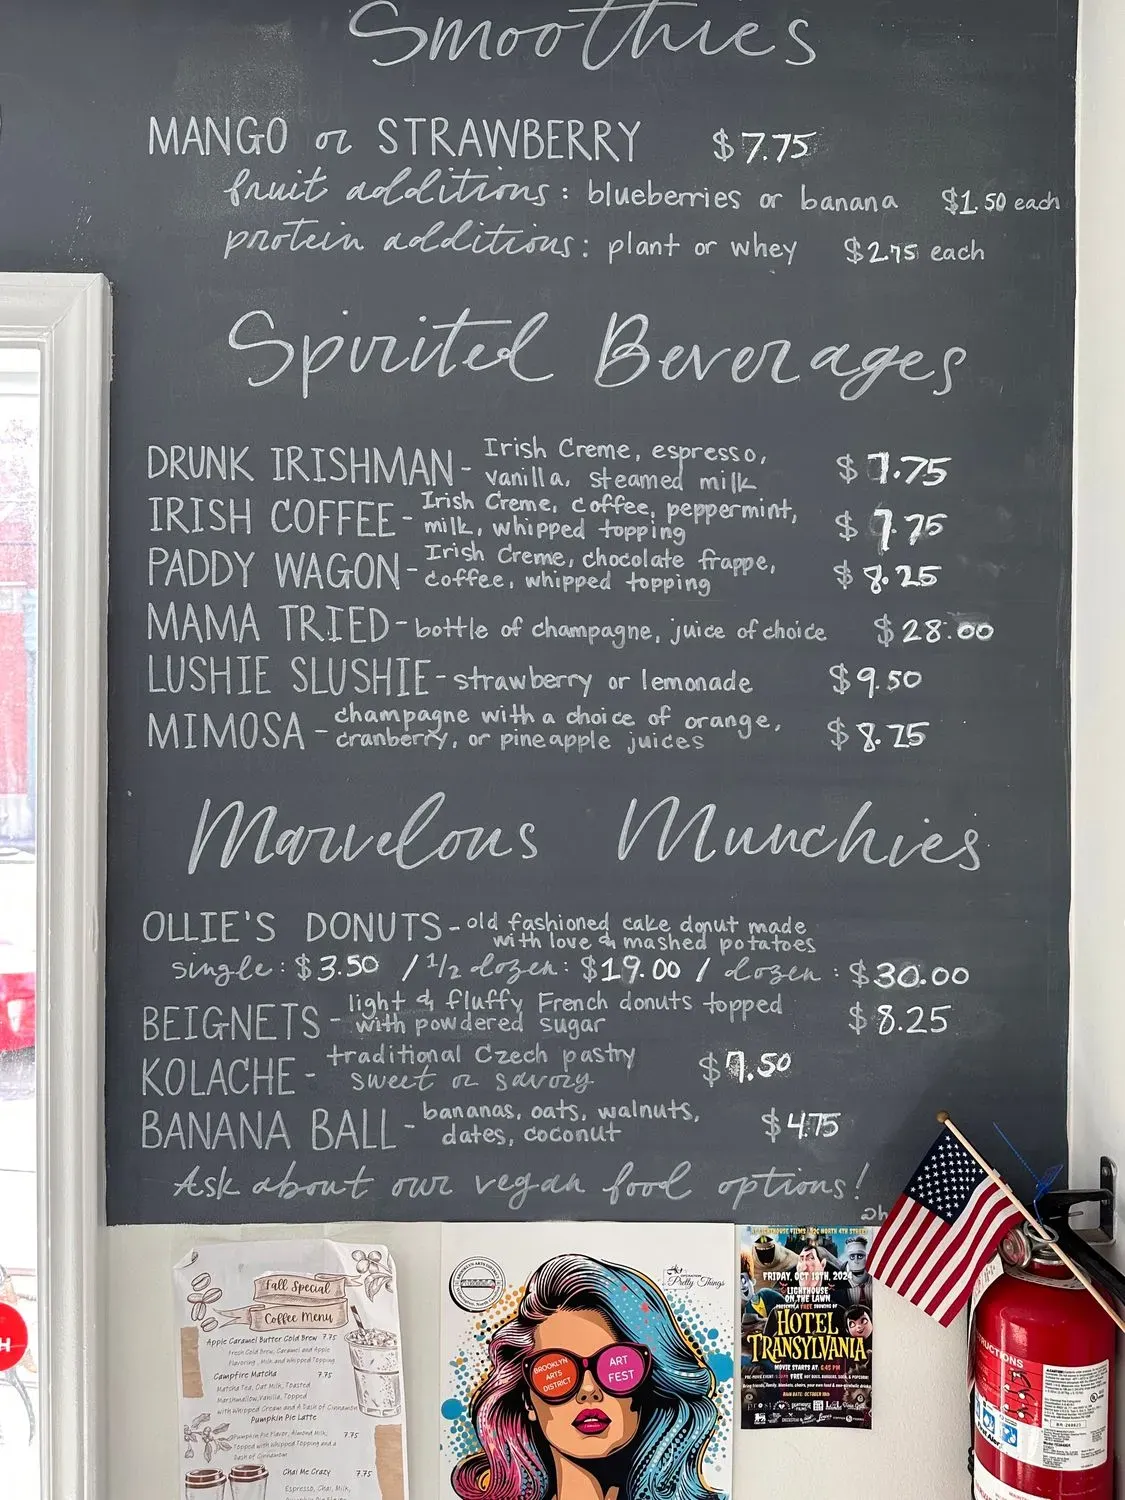 Smoothies
MANGO or STRAWBERRY $7.75
fruit additions: blueberries or banana $1.50 each
protein additions: plant or whey $2.75 each
Spirited Beverages
DRUNK IRISHMAN - Irish Creme, espresso,
vanilla, steamed milk $7.75
IRISH COFFEE - Irish Creme, coffee, peppermint,
milk, whipped topping $7.75
PADDY WAGON - Irish Creme, chocolate frappe,
coffee, whipped topping $8.25
MAMA TRIED - bottle of champagne, juice of choice $28.00
LUSHIE SLUSHIE - strawberry or lemonade $9.50
MIMOSA - champagne with a choice of orange,
cranberry, or pineapple juices $8.75
Marvelous Munchies
OLLIE'S DONUTS - old fashioned cake donut made
with love & mashed potatoes
single: $3.50 / 1/2 dozen: $19.00 / dozen: $30.00
BEIGNETS - light & fluffy French donuts topped
with powdered sugar $8.25
KOLACHE - traditional Czech pastry
sweet or savory $7.50
BANANA BALL - bananas, oats, walnuts,
dates, coconut $4.75
Ask about our vegan food options!
Fall Special
Coffee Menu
Apple Caramel Butter Cold Brew 7.75
Fresh Cold Brew, Caramel and Apple
Flavoring, Milk and Whipped Topping
Campfire Matcha 7.75
Matcha Tea, Oat Milk, Toasted
Marshmallow, Vanilla, Topped
with Whipped Cream and A Dash of Cinnamon
Pumpkin Pie Latte
Pumpkin Pie Flavor, Almond Milk, 7.75
Topped with Whipped Topping and a
Dash of Cinnamon
Chai Me Crazy 7.75
Espresso, Chai, Milk,
Pretty Things
BROOKLYN
ARTS
DISTRICT
ART
FEST
FRIDAY, OCT 18TH, 2024
LIGHTHOUSE
ON THE LAWN
PRESENTS A FREE SHOWING OF
HOTEL
TRANSYLVANIA
MOVIE STARTS AT 6:45 PM
RAIN DATE: OCTOBER 19TH
INSTRUCTIONS
H